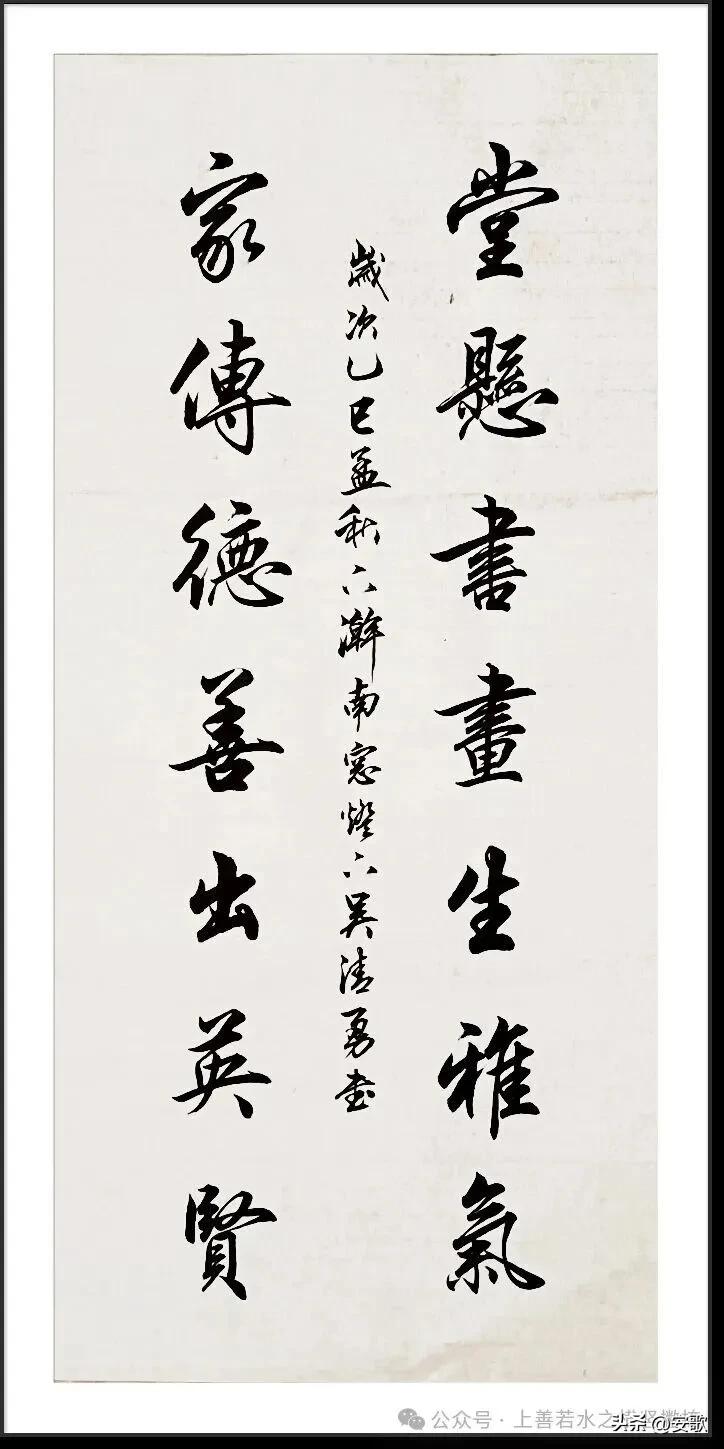 堂懸書畫生雅氣
歲次乙巳孟秋下澣南窓燈下吴清勇書
家傳德善出英賢
公众号·上善若水之
头条@安歌